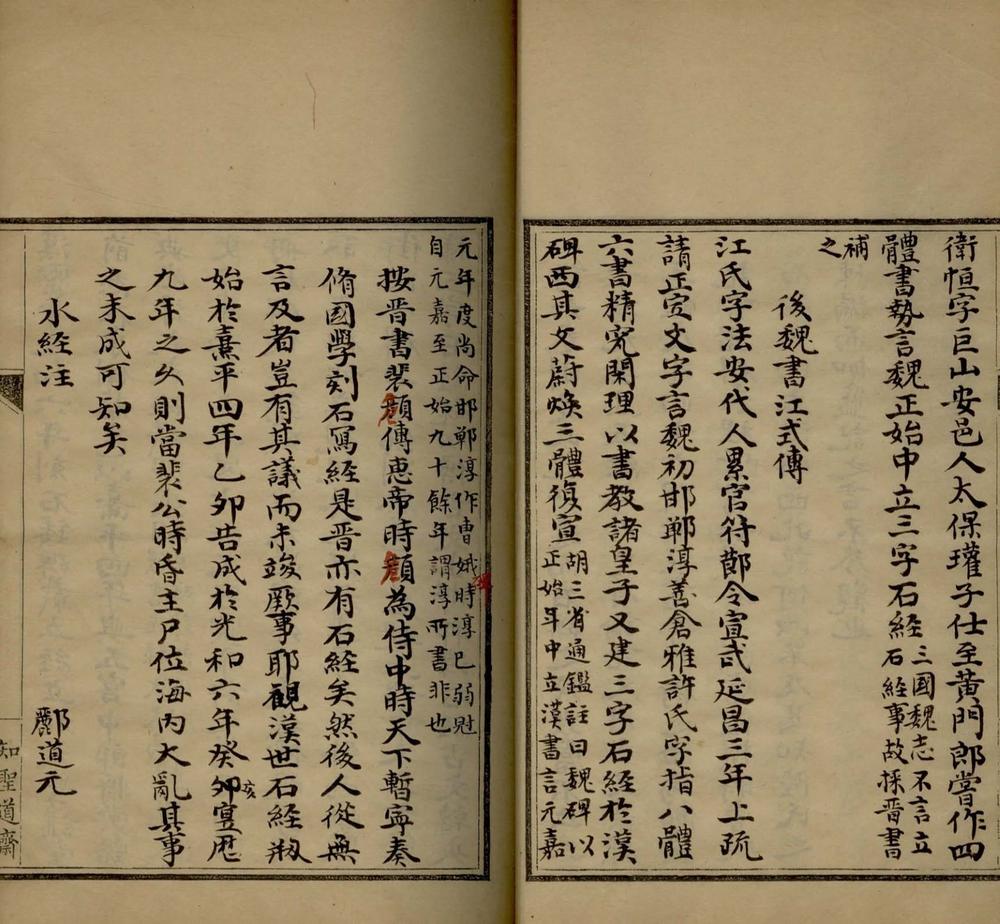 衛恒字巨山安邑人太保瓘子仕至黃門郎嘗作四
體書勢言魏正始中立三字石經三國魏志不言立石經事故採晉書
補之
後魏書江式傳
江氏字法安代人累官符節令宣武延昌三年上疏
請正定文字言魏初邯鄲淳善倉雅許氏字指八體
六書精究閑理以書教諸皇子又建三字石經於漢
碑西其文蔚煥三體復宣胡三省通鑑註曰魏碑以正始年中立漢書言元嘉
元年度尚命邯鄲淳作曹娥時淳已弱冠
自元嘉至正始九十餘年謂淳所書非也
按晉書裴頠傳惠帝時頠為侍中時天下暫寧奏
脩國學刻石寫經是晉亦有石經矣然後人從無
言及者豈有其議而未竣厥事耶觀漢世石經剏
始於熹平四年乙卯告成於光和六年癸卯亥寔歷
九年之久則當裴公時昏主尸位海內大亂其事
之未成可知矣
水經注 酈道元
知聖道齋